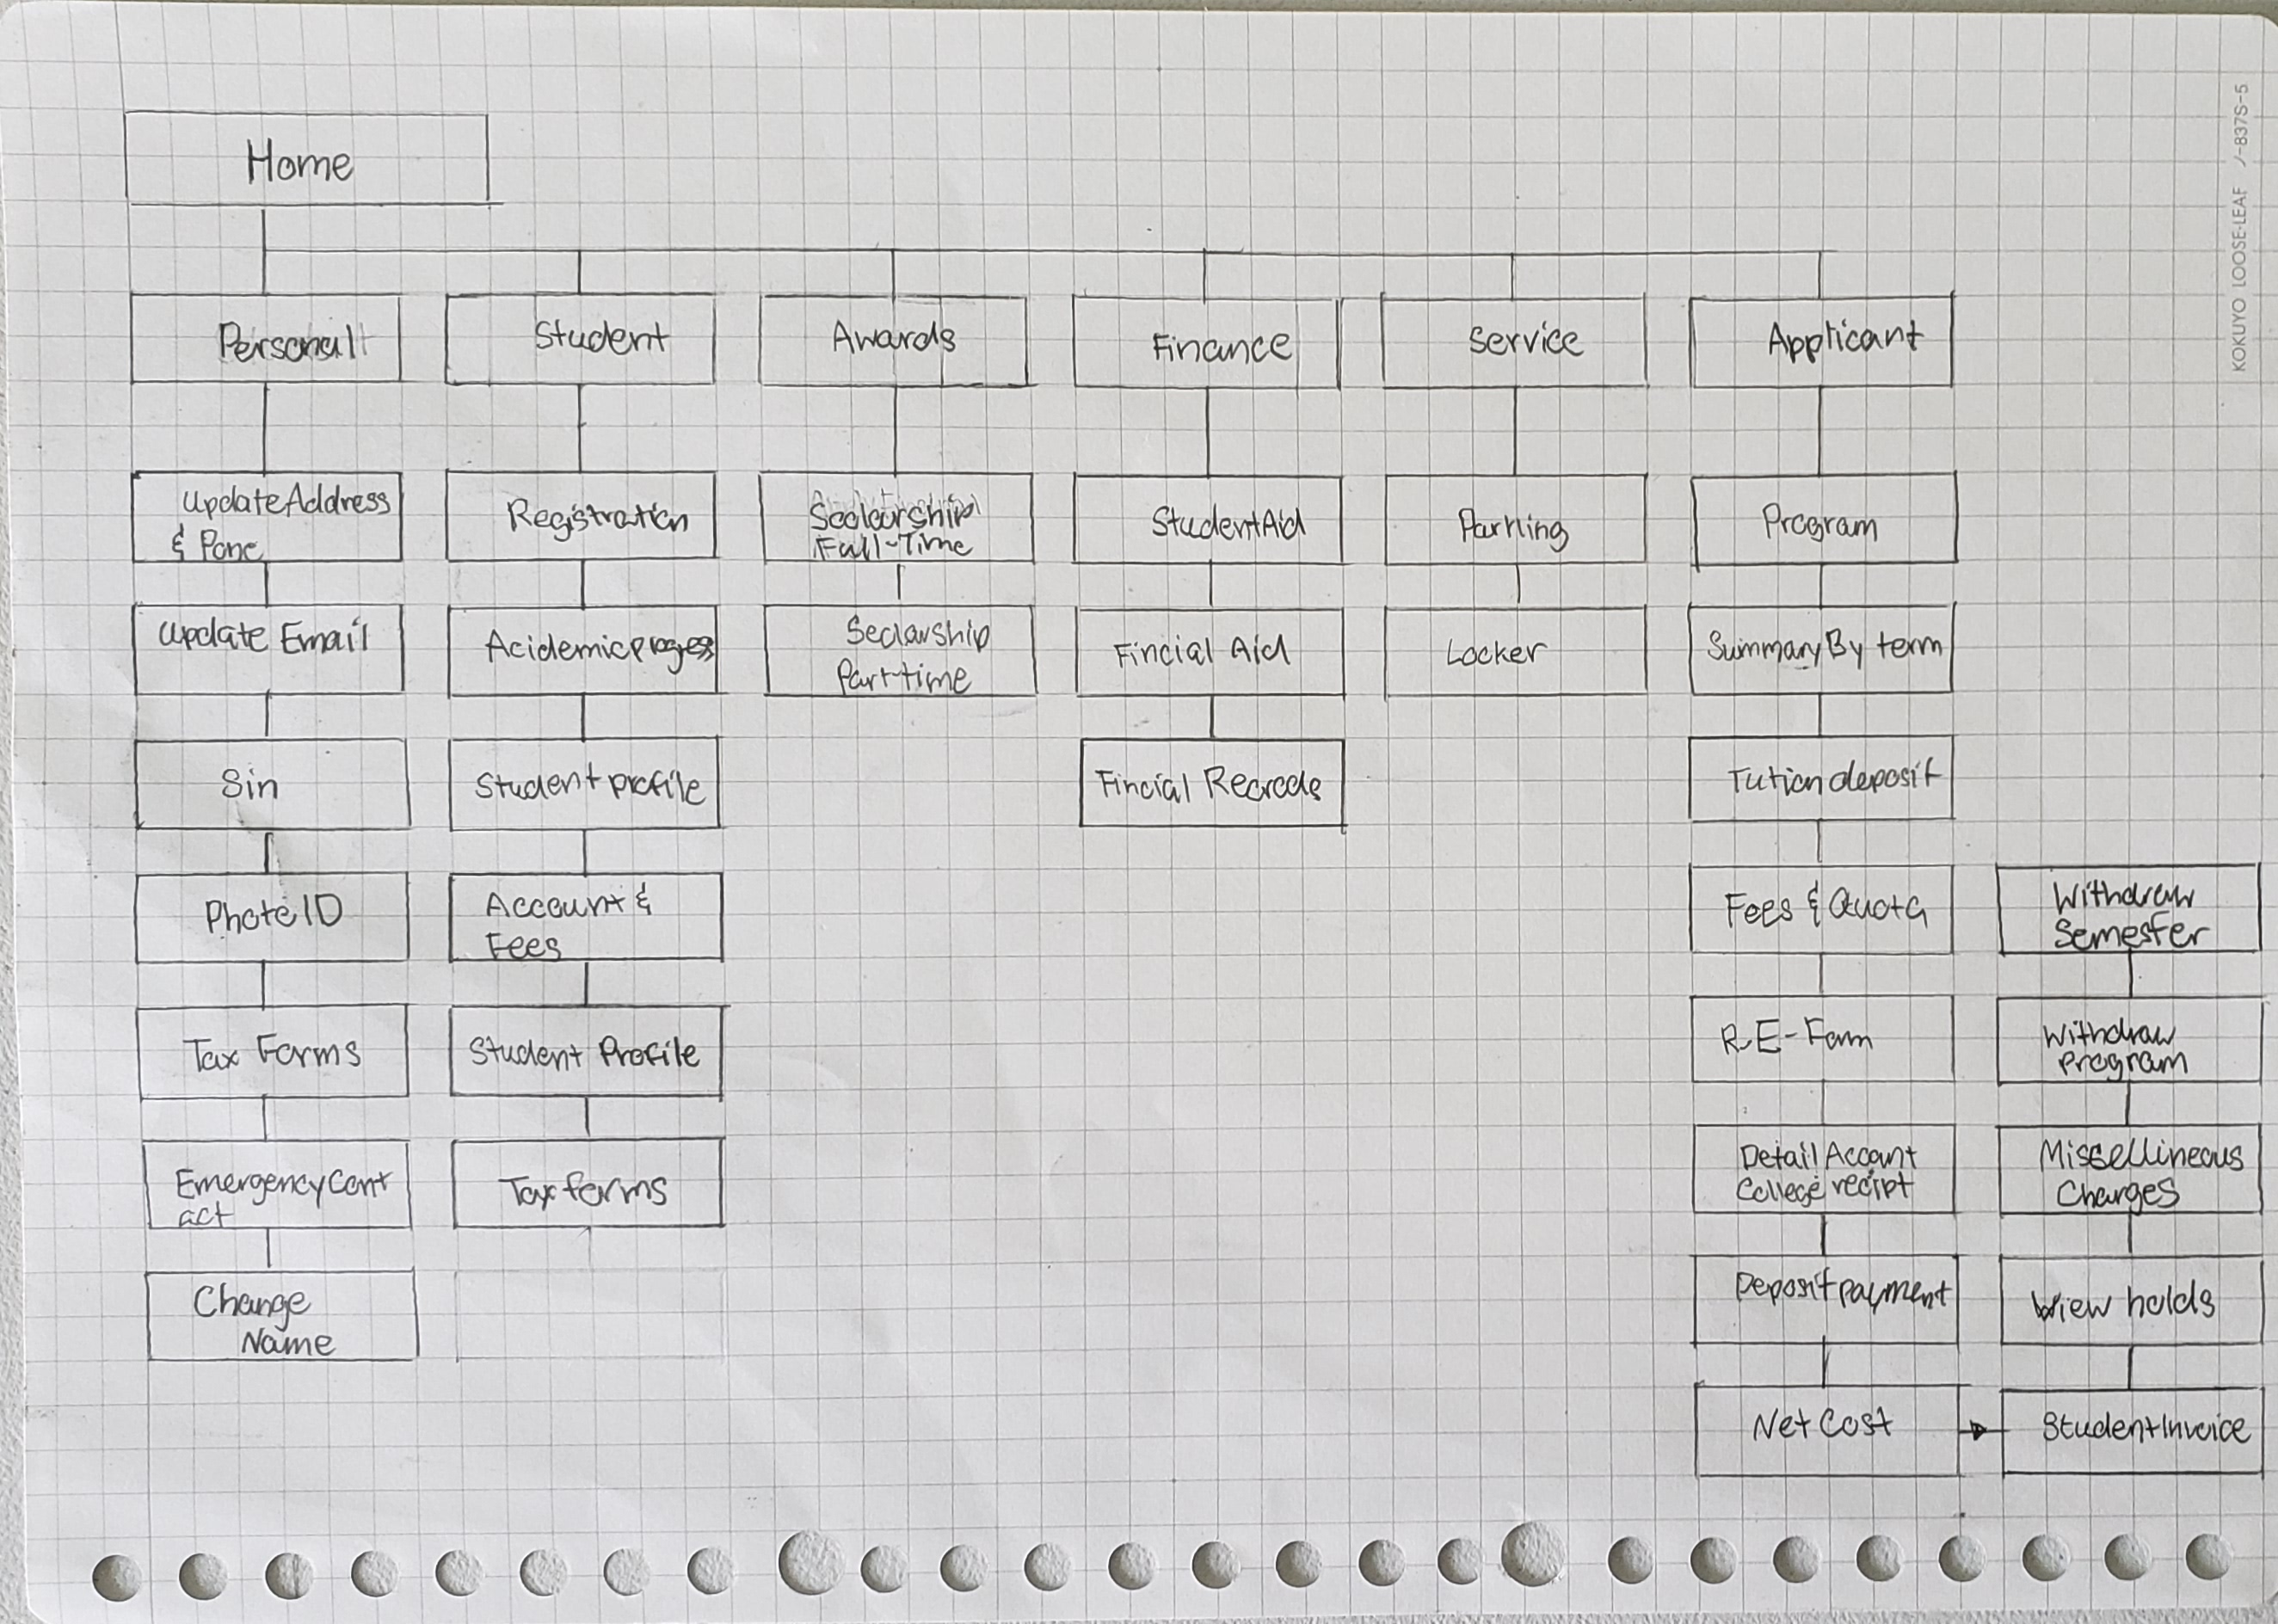 Home
Personal
Update Address
& Pone
Update Email
Sin
Photo ID
Tax Forms
Emergency Cont
act
Change
Name
Student
Registration
Acidemic progess
Student profile
Account &
Fees
Student Profile
Tax forms
Awards
Full-Time
Seclarship
Part time
Finance
Student Aid
Fincial Aid
Fincial Records
Service
Parking
Locker
Applicant
Program
Summary By term
Tution deposit
Fees & Quota
R-E-Fam
Detail Accont
College recipt
Deposit Payment
Net Cost
Student Invoice
View holds
Miscellineous
Charges
Withdraw
Program
Withdraw
Semester
KOKUYO LOOSE-LEAF ノ-837S-5